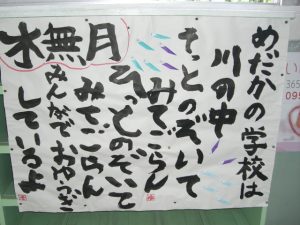 めだかの学校は
川の中
そっとのぞいて
みてごらん
そっとのぞいて
みてごらん
みんなでおゆうぎ
しているよ
水無月